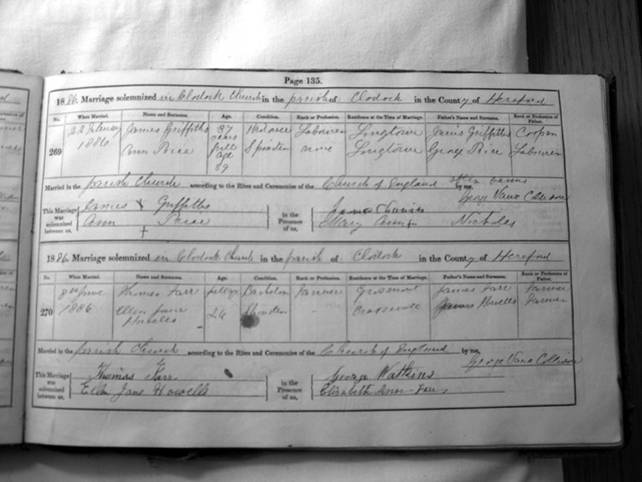 Page 135.
1886. Marriage solemnized in Clodock Church in the parish of Clodock in the County of Hereford
No. When Married. Name and Surname. Age. Condition. Rank or Profession. Residence at the Time of Marriage. Father's Name and Surname. Rank or Profession of Father.
269 1886 James Griffiths 37 years Labourer Longtown James Griffiths Cooper
Ann Price full age Spinster none Longtown George Price Labourer
Married in the parish Church according to the Rites and Ceremonies of the Church of England by me,
This Marriage was solemnized between us, James Griffiths in the Presence of us,
Ann Price Mary Ann Nicholas
1886. Marriage solemnized in Clodock Church in the parish of Clodock in the County of Hereford
No. When Married. Name and Surname. Age. Condition. Rank or Profession. Residence at the Time of Marriage. Father's Name and Surname. Rank or Profession of Father.
270 June 1886 Thomas Farr full age Bachelor Farmer Grosmont James Farr Farmer
Ellen Jane Howells 26 Spinster James Howells Farmer
Married in the parish Church according to the Rites and Ceremonies of the Church of England by me,
This Marriage was solemnized between us, Thomas Farr in the Presence of us, George Watkins
Ellen Jane Howells Elizabeth Farr